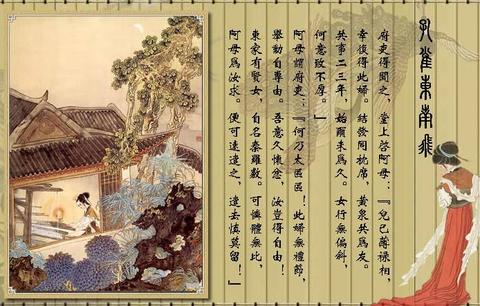 孔雀東南飛
府吏得聞之，堂上啓阿母：『兒已薄祿相，
幸復得此婦。結發同枕席，黃泉共爲友。
共事二三年，始爾未爲久。女行無偏斜，
何意致不厚。』
阿母謂府吏：『何乃太區區！此婦無禮節，
舉動自專由。吾意久懷忿，汝豈得自由！
東家有賢女，自名秦羅敷。可憐體無比，
阿母爲汝求。便可速遣之，遣去慎莫留！』